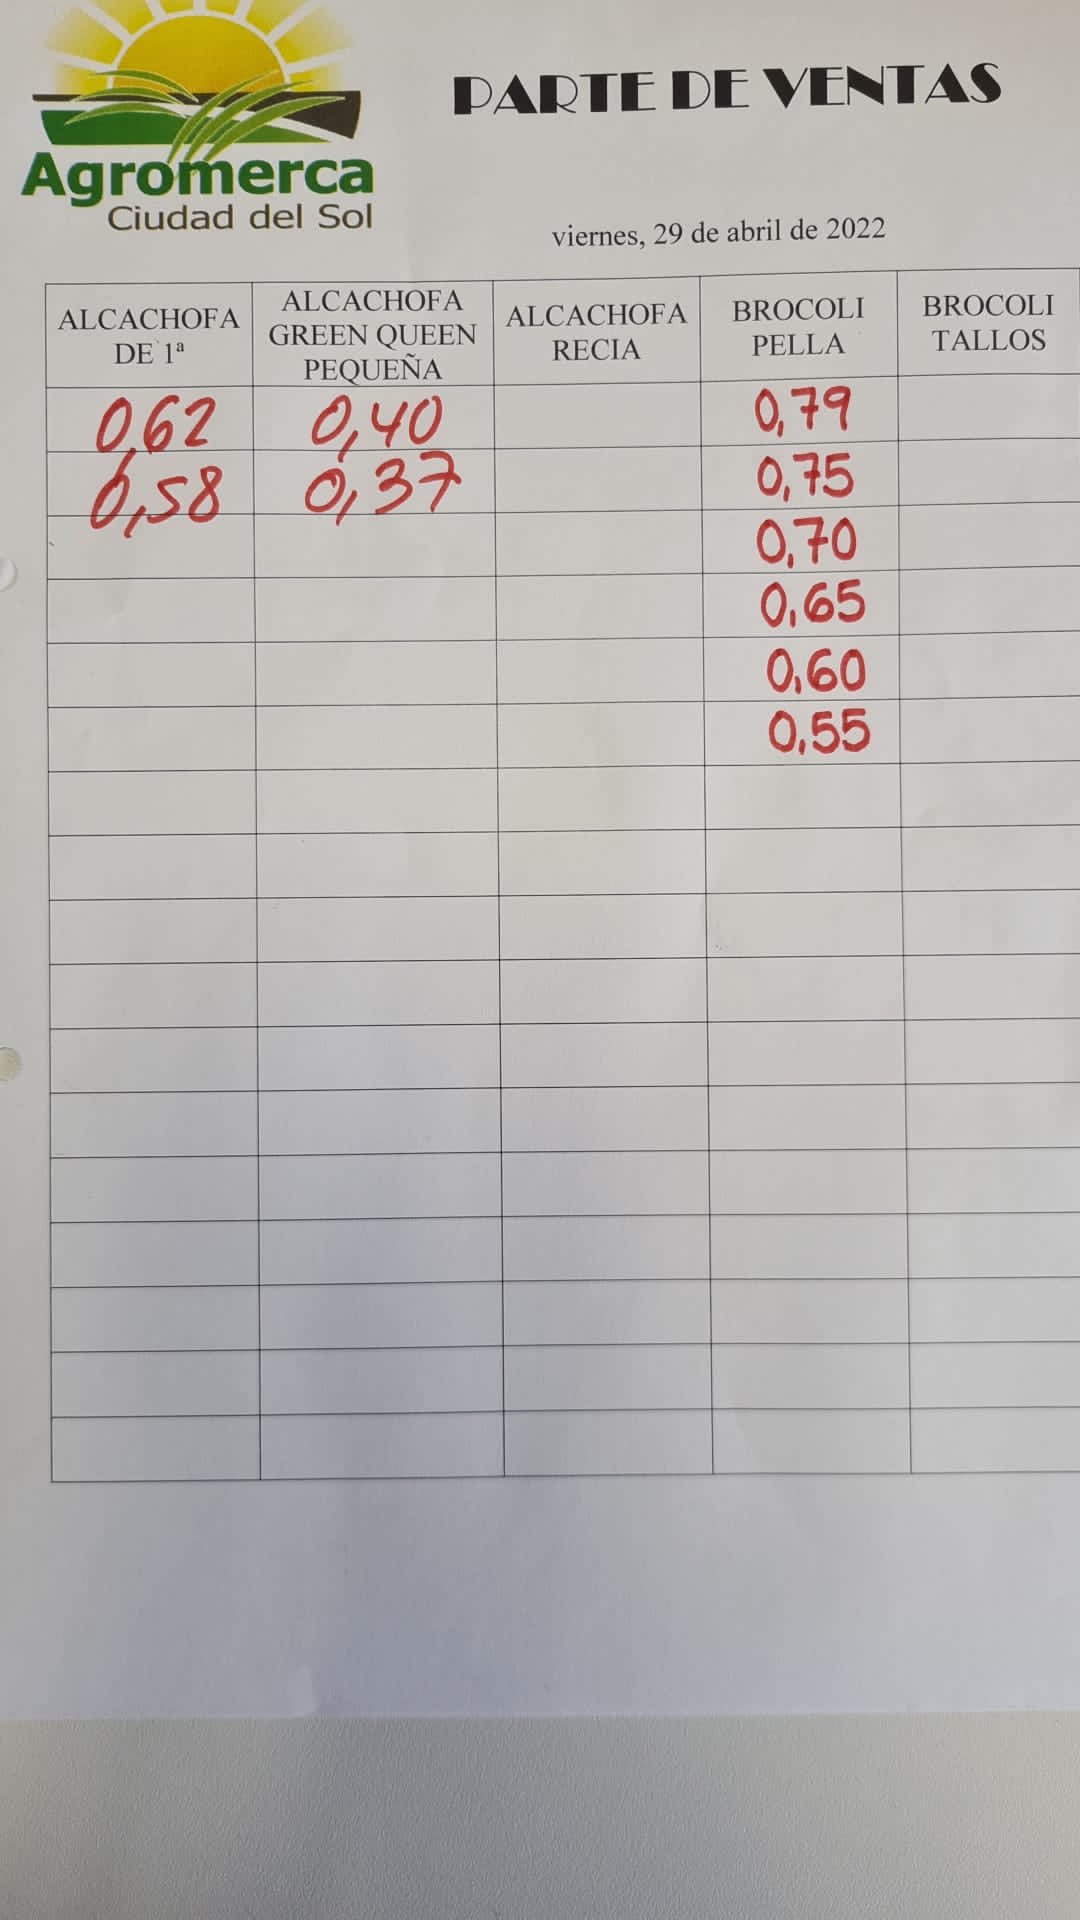 Agromerca
Ciudad del Sol
PARTE DE VENTAS
viernes, 29 de abril de 2022
ALCACHOFA DE 1ª
ALCACHOFA GREEN QUEEN PEQUEÑA
ALCACHOFA RECIA
BROCOLI PELLA
BROCOLI TALLOS
0,62 0,40 0,79
0,58 0,37 0,75
0,70
0,65
0,60
0,55